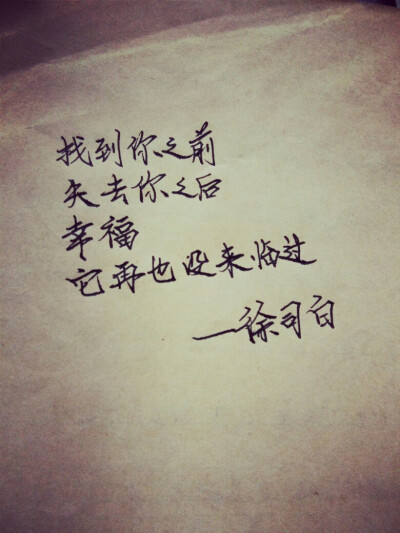 找到你之前
失去你之后
幸福
它再也没来临过
—徐司白